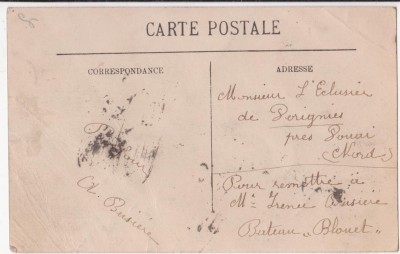 CARTE POSTALE
CORRESPONDANCE
ADRESSE
Monsieur L'Eclusier
de Dorignies
près Douai
(Nord)
Pour remettre à
Mr Irénée Busière
Bateau „Blouet"
A. Busière